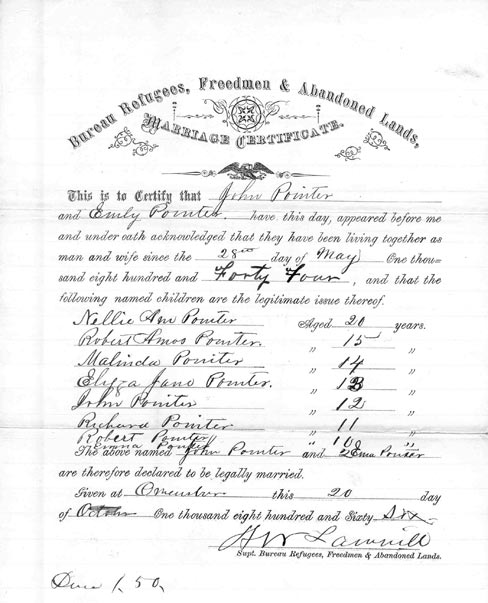 Bureau Refugees, Freedmen & Abandoned Lands,
MARRIAGE CERTIFICATE.
This is to Certify that John Pointer
and Emily Pointer. have this day, appeared before me
and under oath acknowledged that they have been living together as
man and wife since the 28 day of May One thou-
sand eight hundred and Forty Four, and that the
following named children are the legitimate issue thereof.
Nellie Ann Pointer Aged 20 years.
Robert Amos Pointer. " 15 "
Malinda Pointer " 14 "
Eliza Jane Pointer. " 13 "
John Pointer " 12 "
Richard Pointer " 11 "
Robert Pointer " 10 "
Emma Pointer 2
The above named John Pointer and Pointer
are therefore declared to be legally married.
Given at this 20 day
of One thousand eight hundred and Sixty Six
Supt. Bureau Refugees, Freedmen & Abandoned Lands.
1.50.